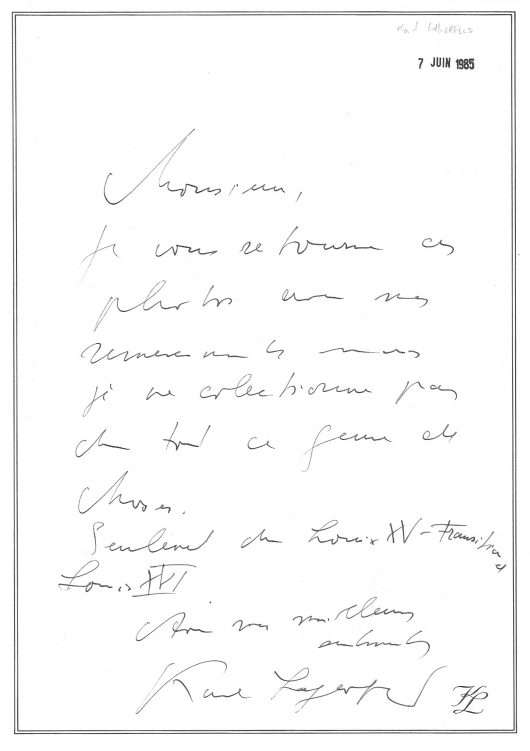 Karl Lagerfeld
7 JUIN 1985
Monsieur,
Je vous retourne ces
photos avec mes
remerciements mais
je ne colectionne pas
du tout ce genre de
choses.
Seulement du Louis XV - Transition et
Louis XVI
Avec mes meilleurs
sentiments
Karl Lagerfeld
KL